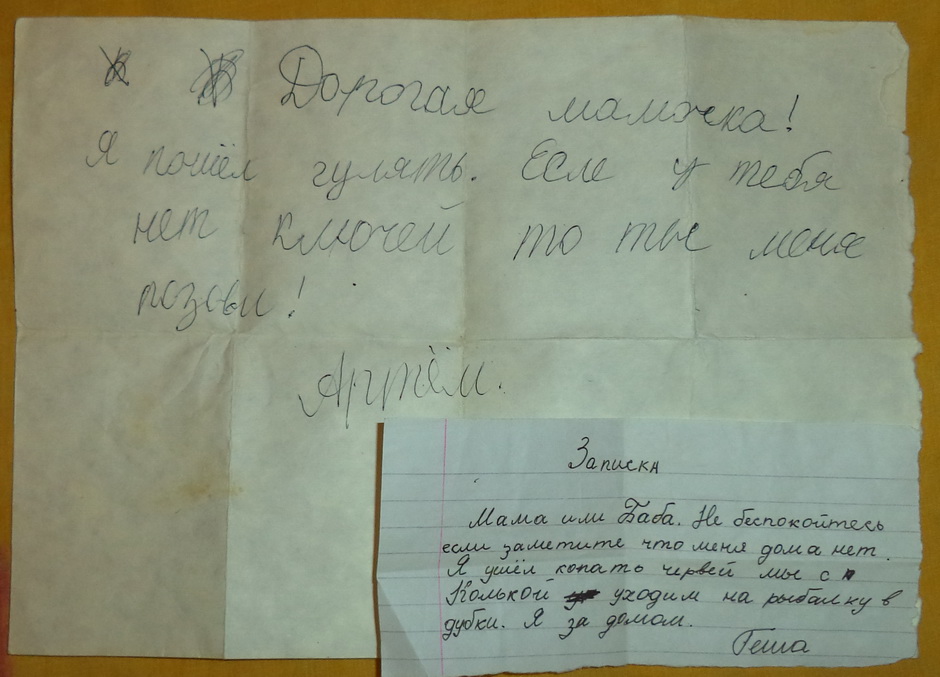 Дорогая мамочка!
Я пошёл гулять. Есле у тебя
нет ключей то ты меня
позови!
Артём.
Записка
Мама или Баба. Не беспокойтесь
если заметите что меня дома нет.
Я ушёл копать червей мы с
Колькой уходим на рыбалку в
дубки. Я за домом.
Геша